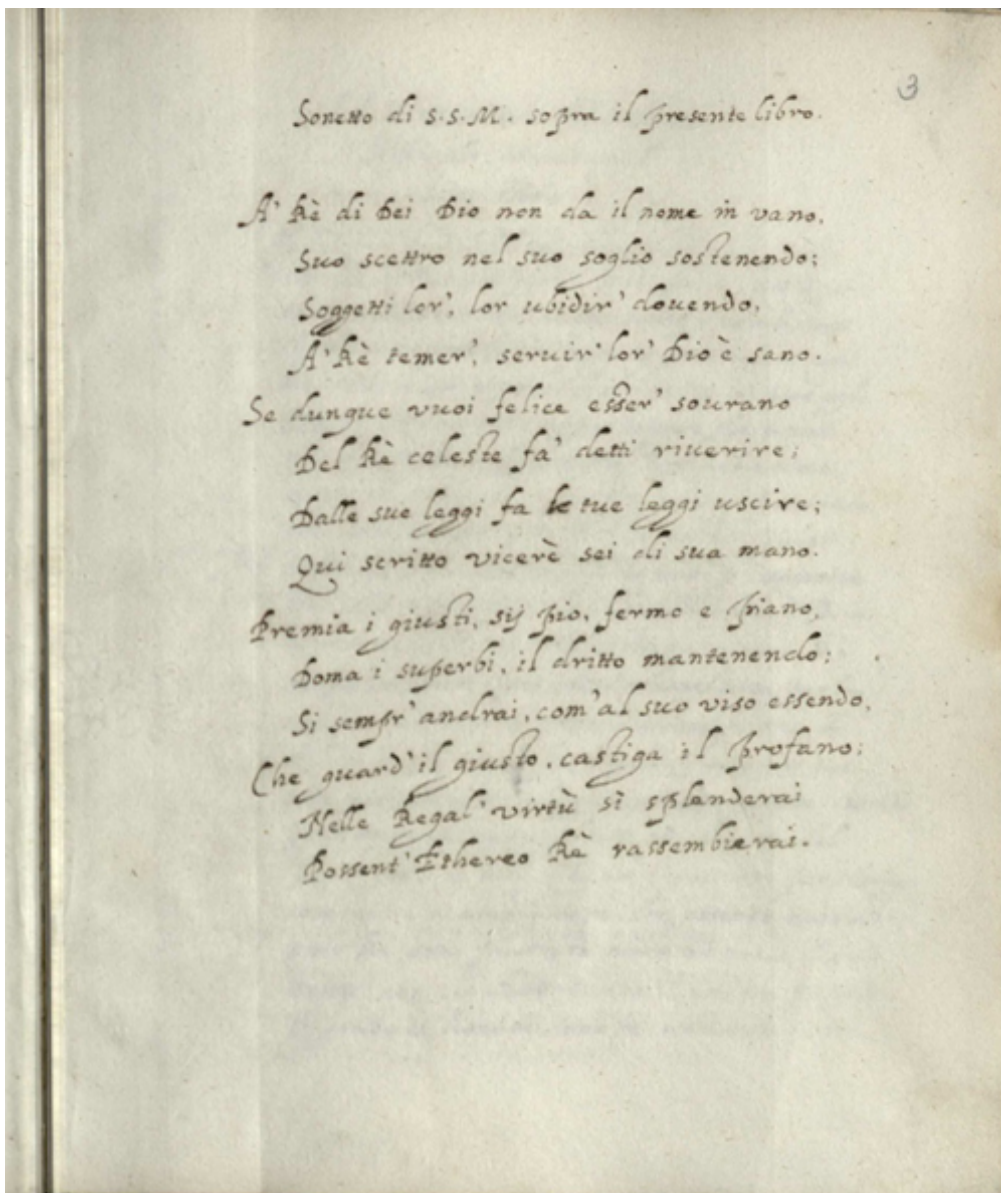 3
Sonetto di S.S.M. sopra il presente libro.
A' Rè di Dei Dio non da il nome in vano,
Suo scettro nel suo soglio sostenendo;
Soggetti lor', lor ubidir' douendo,
A' Rè temer', seruir' lor' Dio è sano.
Se dunque vuoi felice esser' sourano
Del Rè celeste fa' detti riuerire;
Dalle sue leggi fa le tue leggi uscire;
Qui scritto vicerè sei di sua mano.
Premia i giusti, sij pio, fermo e piano,
Doma i superbi, il dritto mantenendo;
Si sempr' andrai, com' al suo viso essendo,
Che guard' il giusto, castiga il profano;
Nelle Regal' virtù sì splenderai
Possent' Ethereo Rè rassembierai.